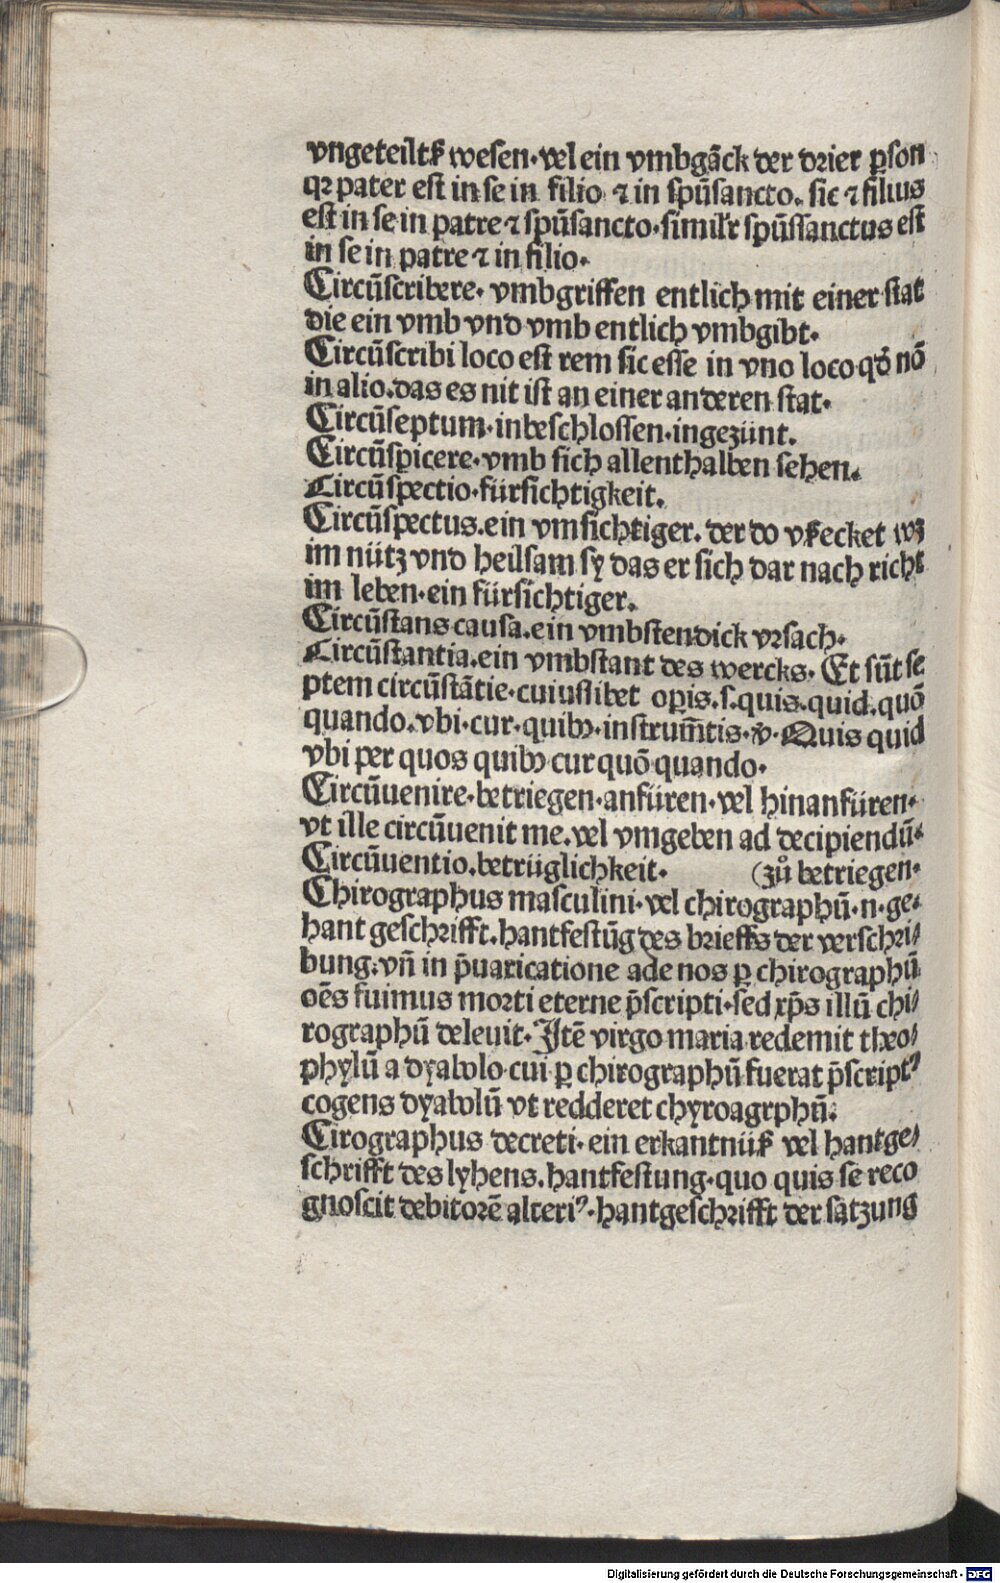 vngeteiltꝭ wesen·vel ein vmbgāck der drier ꝑson
qꝛ pater est in se in filio ⁊ in spūsancto. sic ⁊ filius
est in se in patre ⁊ spūsancto·similr spūssanctus est
in se in patre ⁊ in filio·
Circūscribere· vmbgriffen entlich mit einer stat
die ein vmb vnd vmb entlich vmbgibt·
Circūscribi loco est rem sic esse in vno loco·qđ nō
in alio.das es nit ist an einer anderen stat·
Circūseptum·inbeschlossen·ingezünt.
Circūspicere·vmb sich allenthalben sehen.
Circūspectio·fürsichtigkeit.
Circūspectus.ein vmsichtiger. der do vꝭecket wz
im nütz vnd heilsam sy das er sich dar nach richt
im leben·ein fürsichtiger.
Circūstans causa.ein vmbstendick vrsach·
Circūstantia.ein vmbstant des wercks· Et sūt se
ptem circūstātie·cuiuslibet oꝑis.s.quis.quid.quō
quando.vbi·cur·quibꝫ·instrum̄tis·ꝟ·Quis quid
vbi per quos quibꝫ cur quō quando·
Circūuenire·betriegen·anfüren·vel hinanfüren·
vt ille circūuenit me.vel vmgeben ad decipiendū·
Circūuentio.betrüglichkeit. (zů betriegen·
Chirographus masculini·vel chirographū·n·ge·
hant geschrifft.hantfestūg des brieffs der verschri⸗
bung.vn̄ in p̄uaricatione ade nos ꝑ chirographū
oēs fuimus morti eterne p̄scripti·sed xp̄s illū chi⸗
rographū deleuit·Itē virgo maria redemit theo⸗
phylū a dyabolo cui ꝑ chirographū fuerat p̄scriptꝰ
cogens dyabolū vt redderet chyroagrphū.
Cirographus decreti·ein erkantnüꝭ vel hantge⸗
schrifft des lyhens.hantfestung·quo quis se reco
gnoscit debitorē alteriꝰ·hantgeschrifft der satzung
Digitalisierung gefördert durch die Deutsche Forschungsgemeinschaft - DFG